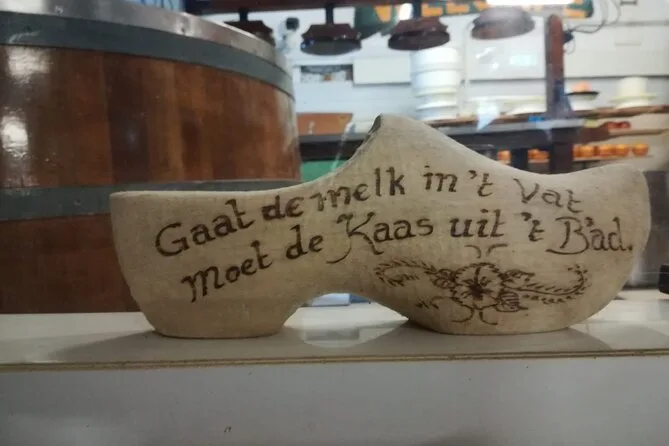 Gaat de melk in 't vat
Moet de Kaas uit 't Bad.